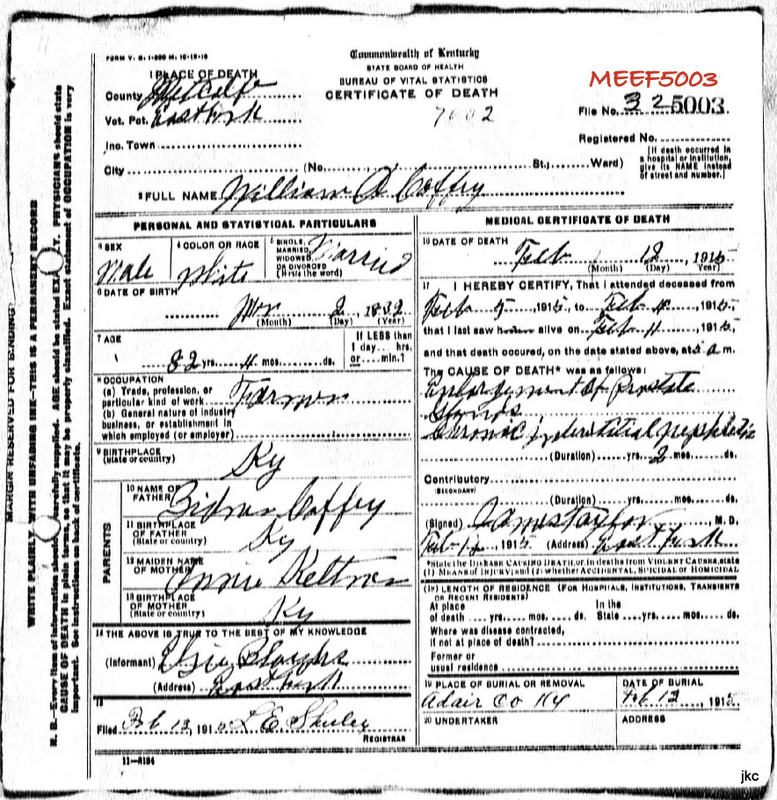 FORM V. S. 1-
Commonwealth of Kentucky
STATE BOARD OF HEALTH
BUREAU OF VITAL STATISTICS
CERTIFICATE OF DEATH
MEEF5003
1 PLACE OF DEATH
County Metcalfe
Vot. Pct. East Fork
7002
File No. 32 5003
Inc. Town
Registered No.
City (No. St.; Ward)
[If death occurred in
a hospital or institution,
give its NAME instead
of street and number.]
2 FULL NAME William A Coffey
PERSONAL AND STATISTICAL PARTICULARS
3 SEX
Male
4 COLOR OR RACE
White
5 SINGLE,
MARRIED,
WIDOWED,
OR DIVORCED
(Write the word)
Married
6 DATE OF BIRTH
2 1832
(Month) (Day) (Year)
7 AGE
82 yrs. 4 mos. ds.
If LESS than
1 day... hrs.
or... min.?
8 OCCUPATION
(a) Trade, profession, or
particular kind of work
Farmer
(b) General nature of industry
business, or establishment in
which employed (or employer)
9 BIRTHPLACE
(State or country)
Ky
PARENTS
10 NAME OF
FATHER
Coffey
11 BIRTHPLACE
OF FATHER
(State or country)
Ky
12 MAIDEN NAME
OF MOTHER
Annie Keltner
13 BIRTHPLACE
OF MOTHER
(State or country)
Ky
14 THE ABOVE IS TRUE TO THE BEST OF MY KNOWLEDGE
(Informant)
(Address) East Fork
15
Filed Feb 13, 1915 L E Shirley
REGISTRAR
11-8184
MEDICAL CERTIFICATE OF DEATH
16 DATE OF DEATH
Feb 12 1915
(Month) (Day) Year)
17 I HEREBY CERTIFY, That I attended deceased from
Feb 5, 1915, to Feb 11, 1915,
that I last saw alive on Feb 11, 1915,
and that death occured, on the date stated above, at 5 a m.
The CAUSE OF DEATH* was as follows:
Enlargement of Prostate
Glands
Chronic interstitial nephritis
(Duration) yrs. 2 mos. ds.
Contributory
(SECONDARY)
(Duration) yrs. mos. ds.
(Signed) James Taylor, M. D.
Feb 12, 1915 (Address) East Fork
*State the DISEASE CAUSING DEATH, or, in deaths from VIOLENT CAUSES, state
(1) MEANS OF INJURY; and (2) whether ACCIDENTAL, SUICIDAL or HOMICIDAL.
(18) LENGTH OF RESIDENCE (FOR HOSPITALS, INSTITUTIONS, TRANSIENTS
OR RECENT RESIDENTS)
At place In the
of death yrs. mos. ds. State yrs. mos. ds.
Where was disease contracted,
if not at place of death?
Former or
usual residence
19 PLACE OF BURIAL OR REMOVAL
Adair Co Ky
DATE OF BURIAL
Feb 13, 1915
20 UNDERTAKER
ADDRESS
MARGIN RESERVED FOR BINDING
WRITE PLAINLY, WITH UNFADING INK—THIS IS A PERMANENT RECORD
N. B.—Every item of information should be carefully supplied. AGE should be stated EXACTLY. PHYSICIANS should state
CAUSE OF DEATH in plain terms, so that it may be properly classified. Exact statement of OCCUPATION is very
important. See instructions on back of certificate.
jkc